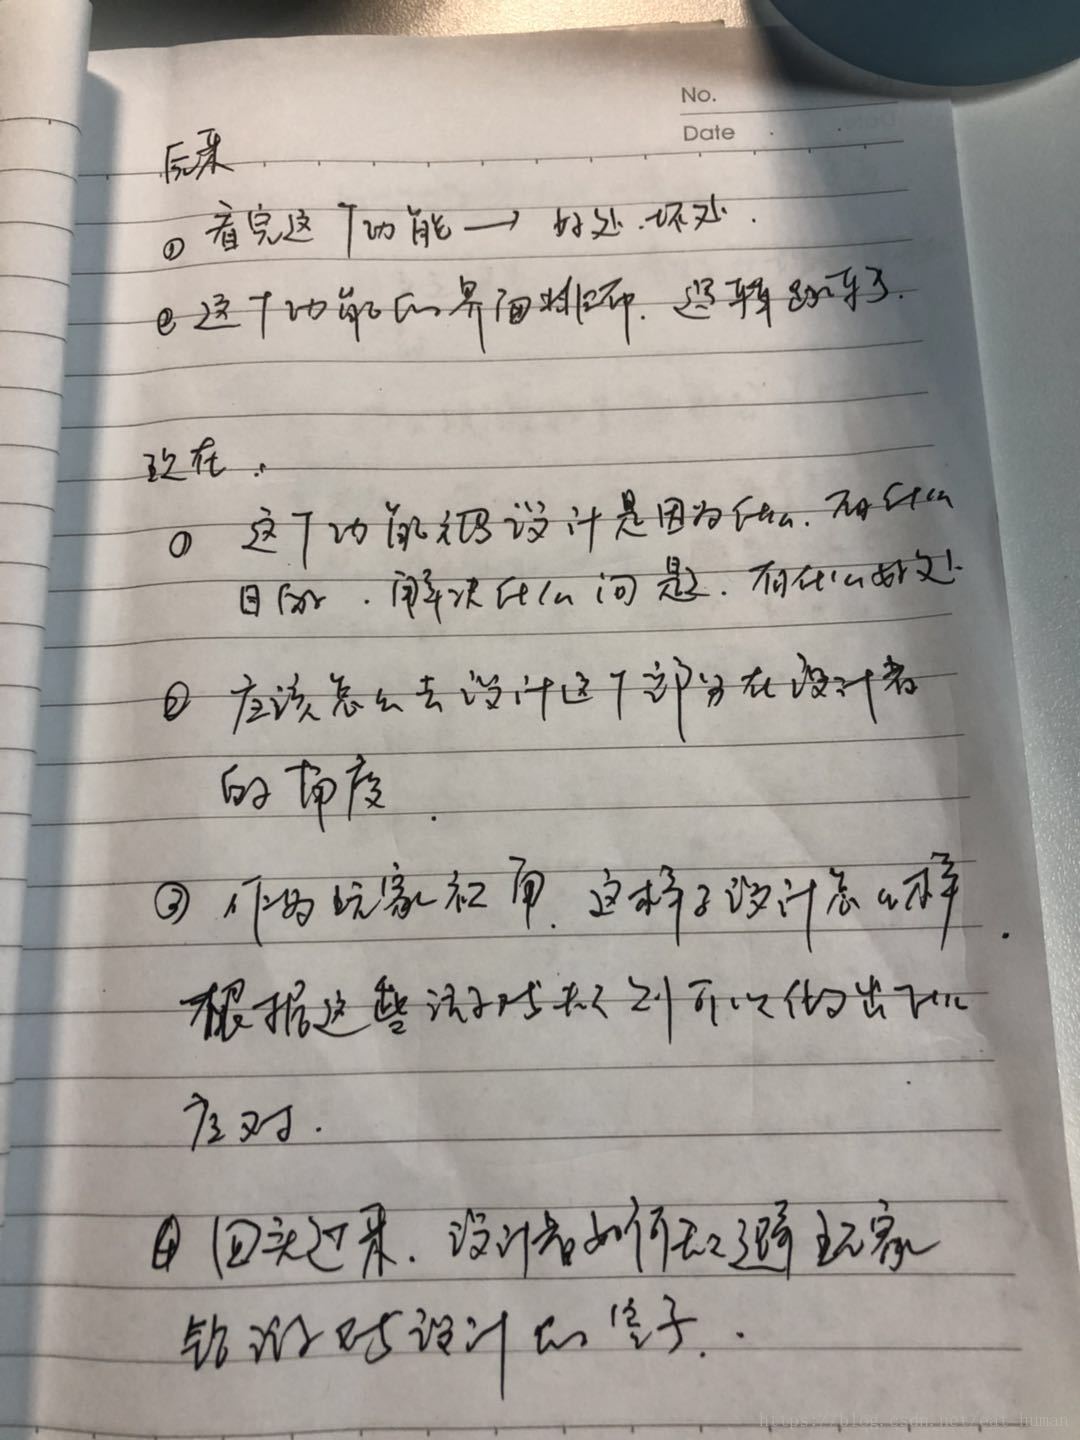 No.
Date
原来
① 看完这个功能 → 好处.坏处.
② 这个功能的界面排布. 逻辑
现在.
① 这个功能 设计是因为什么. 有什么
目的. 解决什么问题. 有什么好处
② 应该怎么去设计这个部分在设计者
的角度.
③ 作为玩家 这样子设计怎么样.
根据这些 可以做出
应对.
④ 回头过来. 设计者如何 玩家
设计的
https://blog.csdn.net/eat_human